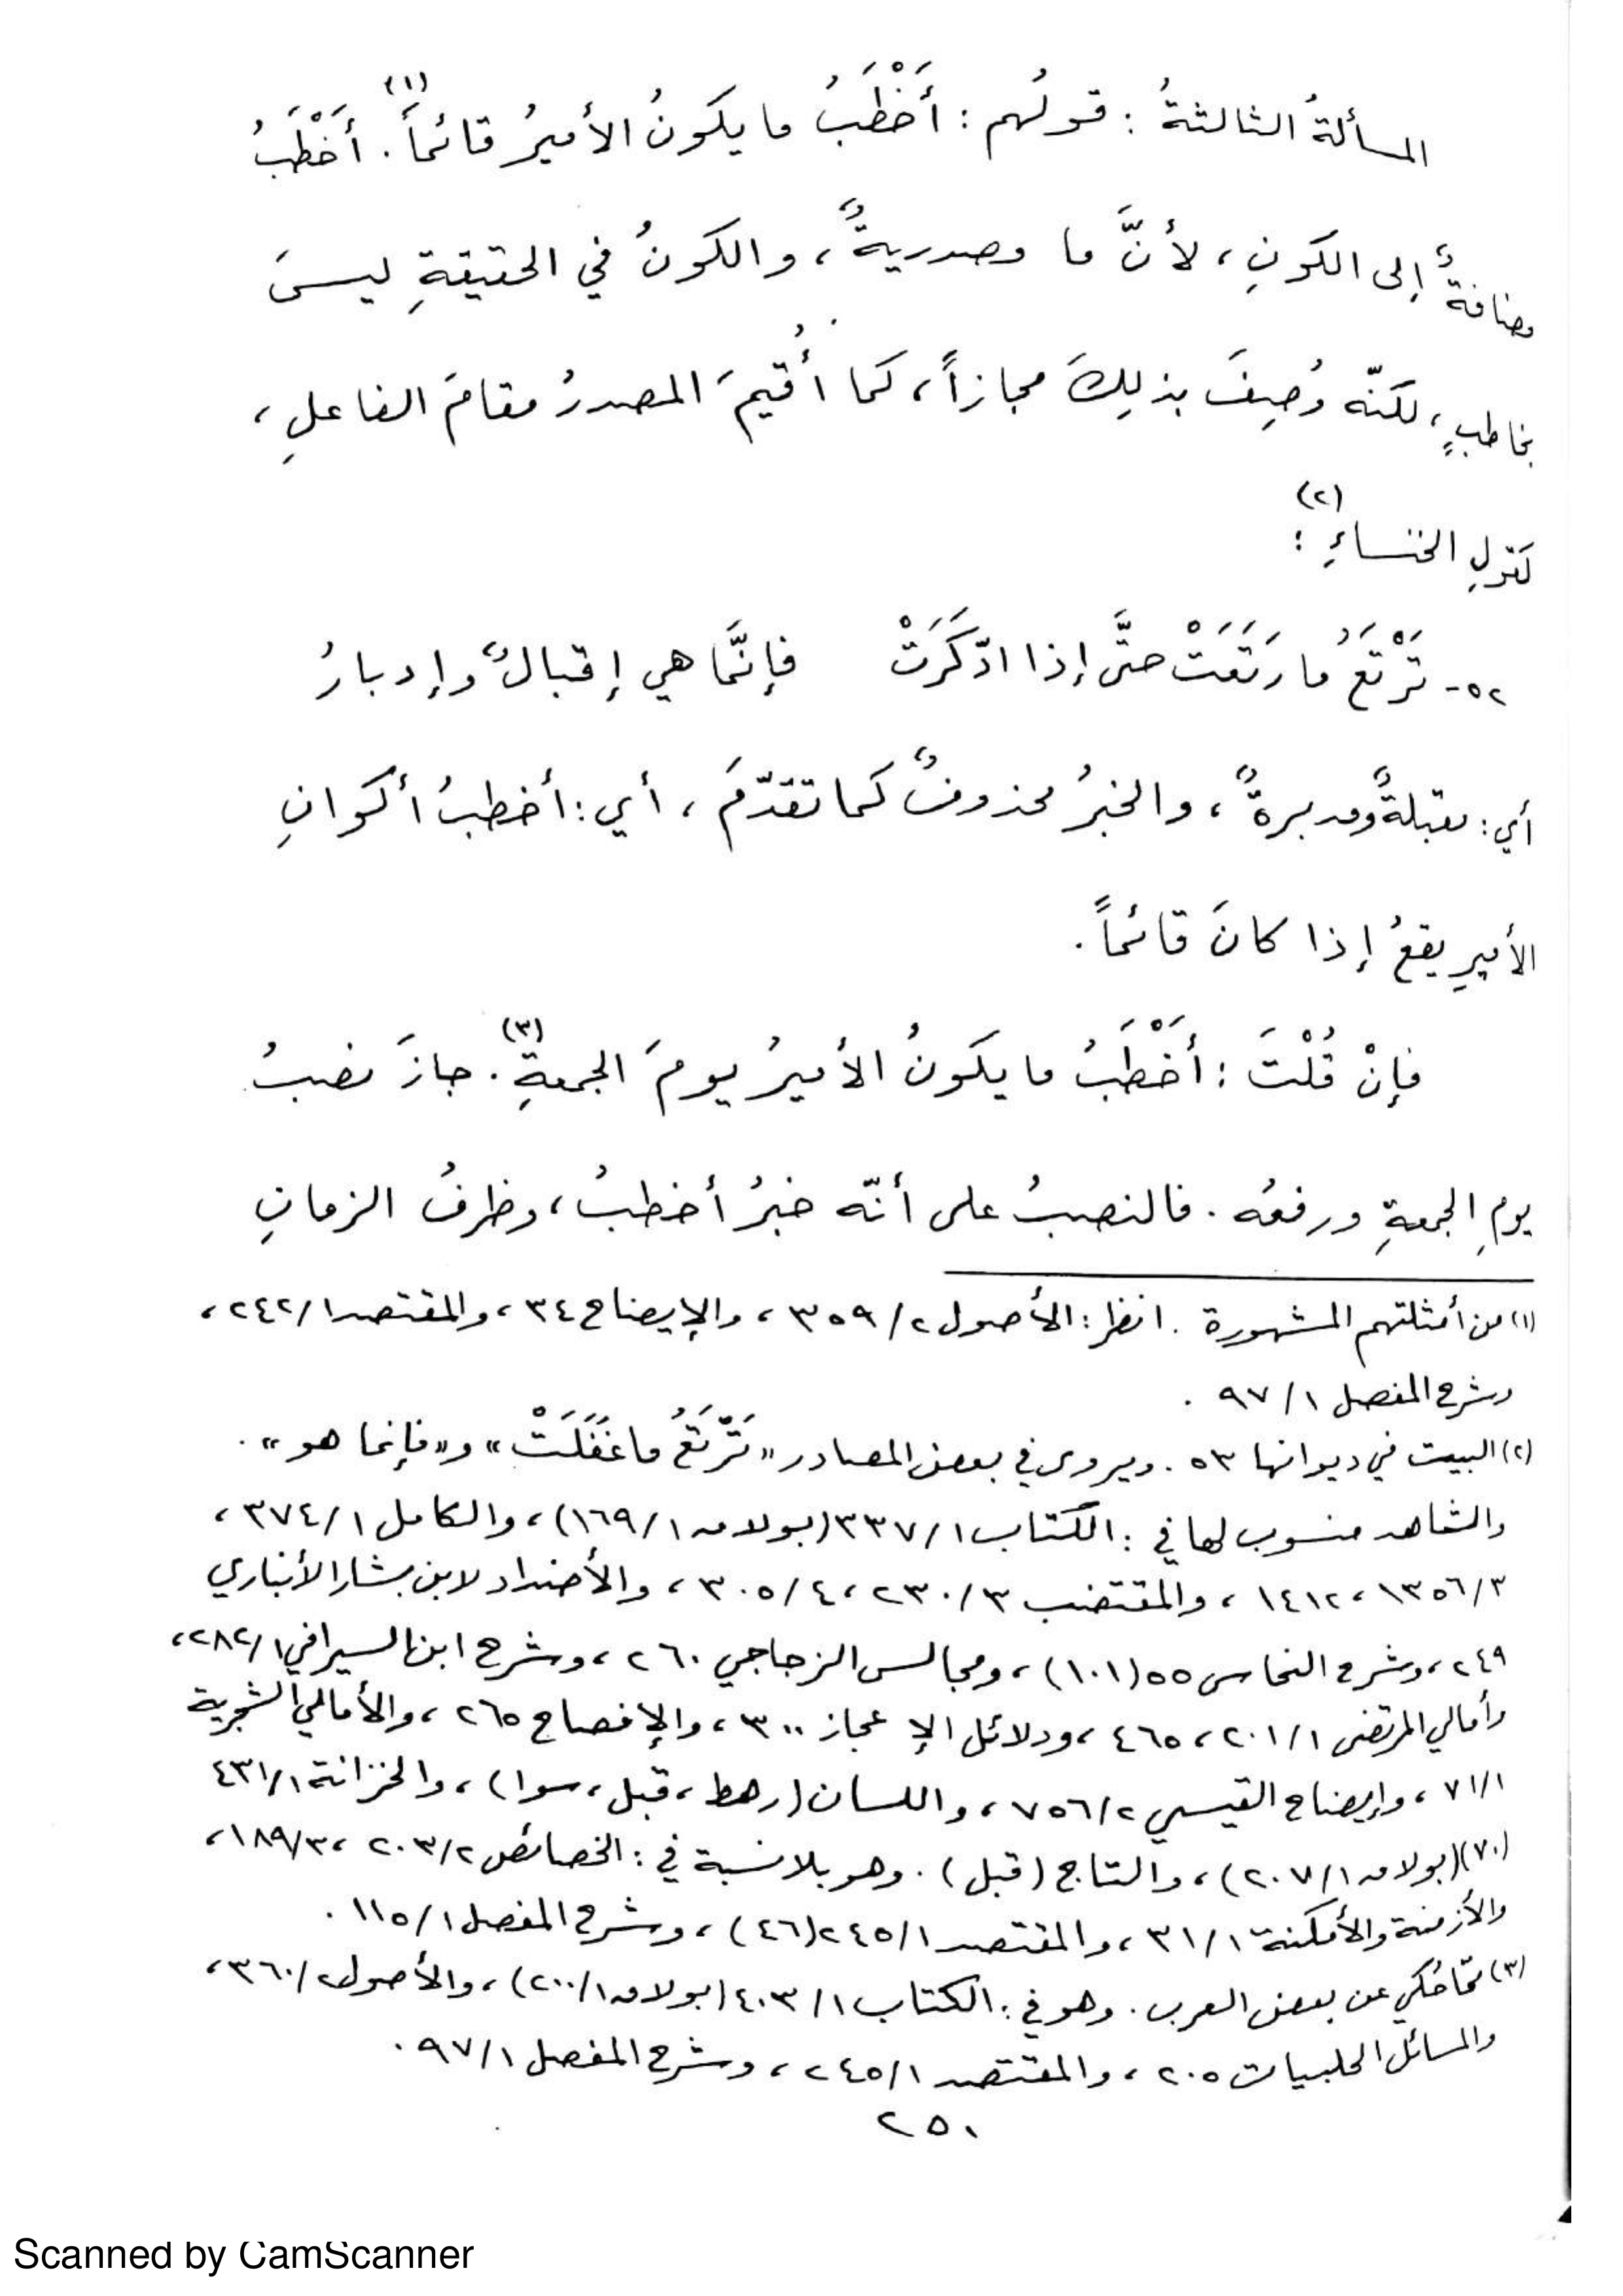 المسألةُ الثالثةُ : قولُهم : أَخْطَبُ ما يكونُ الأميرُ قائماً(١). أَخْطَبُ
مضافةٌ إلى الكونِ ، لأنَّ ما مصدريةٌ ، والكونُ في الحقيقةِ ليسَ
بخاطبٍ ، لكنّه وُصِفَ بذلِكَ مجازاً ، كما أُقيمَ المصدرُ مقامَ الفاعلِ ،
كقولِ الخنساءِ(٢) :
٥٢- تَرْتَعُ ما رَتَعَتْ حتَّى إذا ادّكَرَتْ فإنَّما هي إقبالٌ وإدبارُ
أي : مقبلةٌ ومدبرةٌ ، والخبرُ محذوفٌ كما تقدّمَ ، أي : أخطبُ أكوانِ
الأميرِ يقعُ إذا كانَ قائماً .
فإنْ قُلْتَ : أَخْطَبُ ما يكونُ الأميرُ يومَ الجمعةِ(٣) . جازَ نصبُ
يومِ الجمعةِ ورفعُه . فالنصبُ على أنّه خبرُ أخطبُ ، وظرفُ الزمانِ
(١) من أمثلتهم المشهورة . انظر : الأصول ٢/ ٣٥٩ ، والإيضاح ٣٤ ، والمقتصد ١/ ٢٤٢ ،
وشرح المفصل ١/ ٩٧ .
(٢) البيت في ديوانها ٥٣ . ويروى في بعض المصادر «تَرْتَعُ ما غَفَلَتْ» و«فإنما هو» .
والشاهد منسوب لها في : الكتاب ١/ ٣٣٧ (بولاق ١/ ١٦٩) ، والكامل ١/ ٣٧٤ ،
٣/ ١٣٥٦ ، ١٤١٢ ، والمقتضب ٣/ ٢٣٠ ، ٤/ ٣٠٥ ، والأضداد لابن بشار الأنباري
٢٤٩ ، وشرح النحاس ٥٥ (١٠١) ، ومجالس الزجاجي ٢٦٠ ، وشرح ابن السيرافي ١/ ٢٨٢ ،
وأمالي المرتضى ١/ ٢٠١ ، ٤٦٥ ، ودلائل الإعجاز ٣٠٠ ، والإفصاح ٢٦٥ ، والأمالي الشجرية
١/ ٧١ ، وإيضاح القيسي ٢/ ٧٥٦ ، واللسان (رهط ، قبل ، سوا) ، والخزانة ١/ ٤٣١
(٧٠) (بولاق ١/ ٢٠٧) ، والتاج (قبل) . وهو بلا نسبة في : الخصائص ٢/ ٢٠٣ ، ٣/ ١٨٩ ،
والأزمنة والأمكنة ١/ ٣١ ، والمقتصد ١/ ٢٤٥ (٤٦) ، وشرح المفصل ١/ ١١٥ .
(٣) ممّا حُكي عن بعض العرب . وهو في : الكتاب ١/ ٤٠٣ (بولاق ١/ ٢٠٠) ، والأصول ٢/ ٣٦٠ ،
والمسائل الحلبيات ٢٠٥ ، والمقتصد ١/ ٢٤٥ ، وشرح المفصل ١/ ٩٧ .
٢٥٠
Scanned by CamScanner